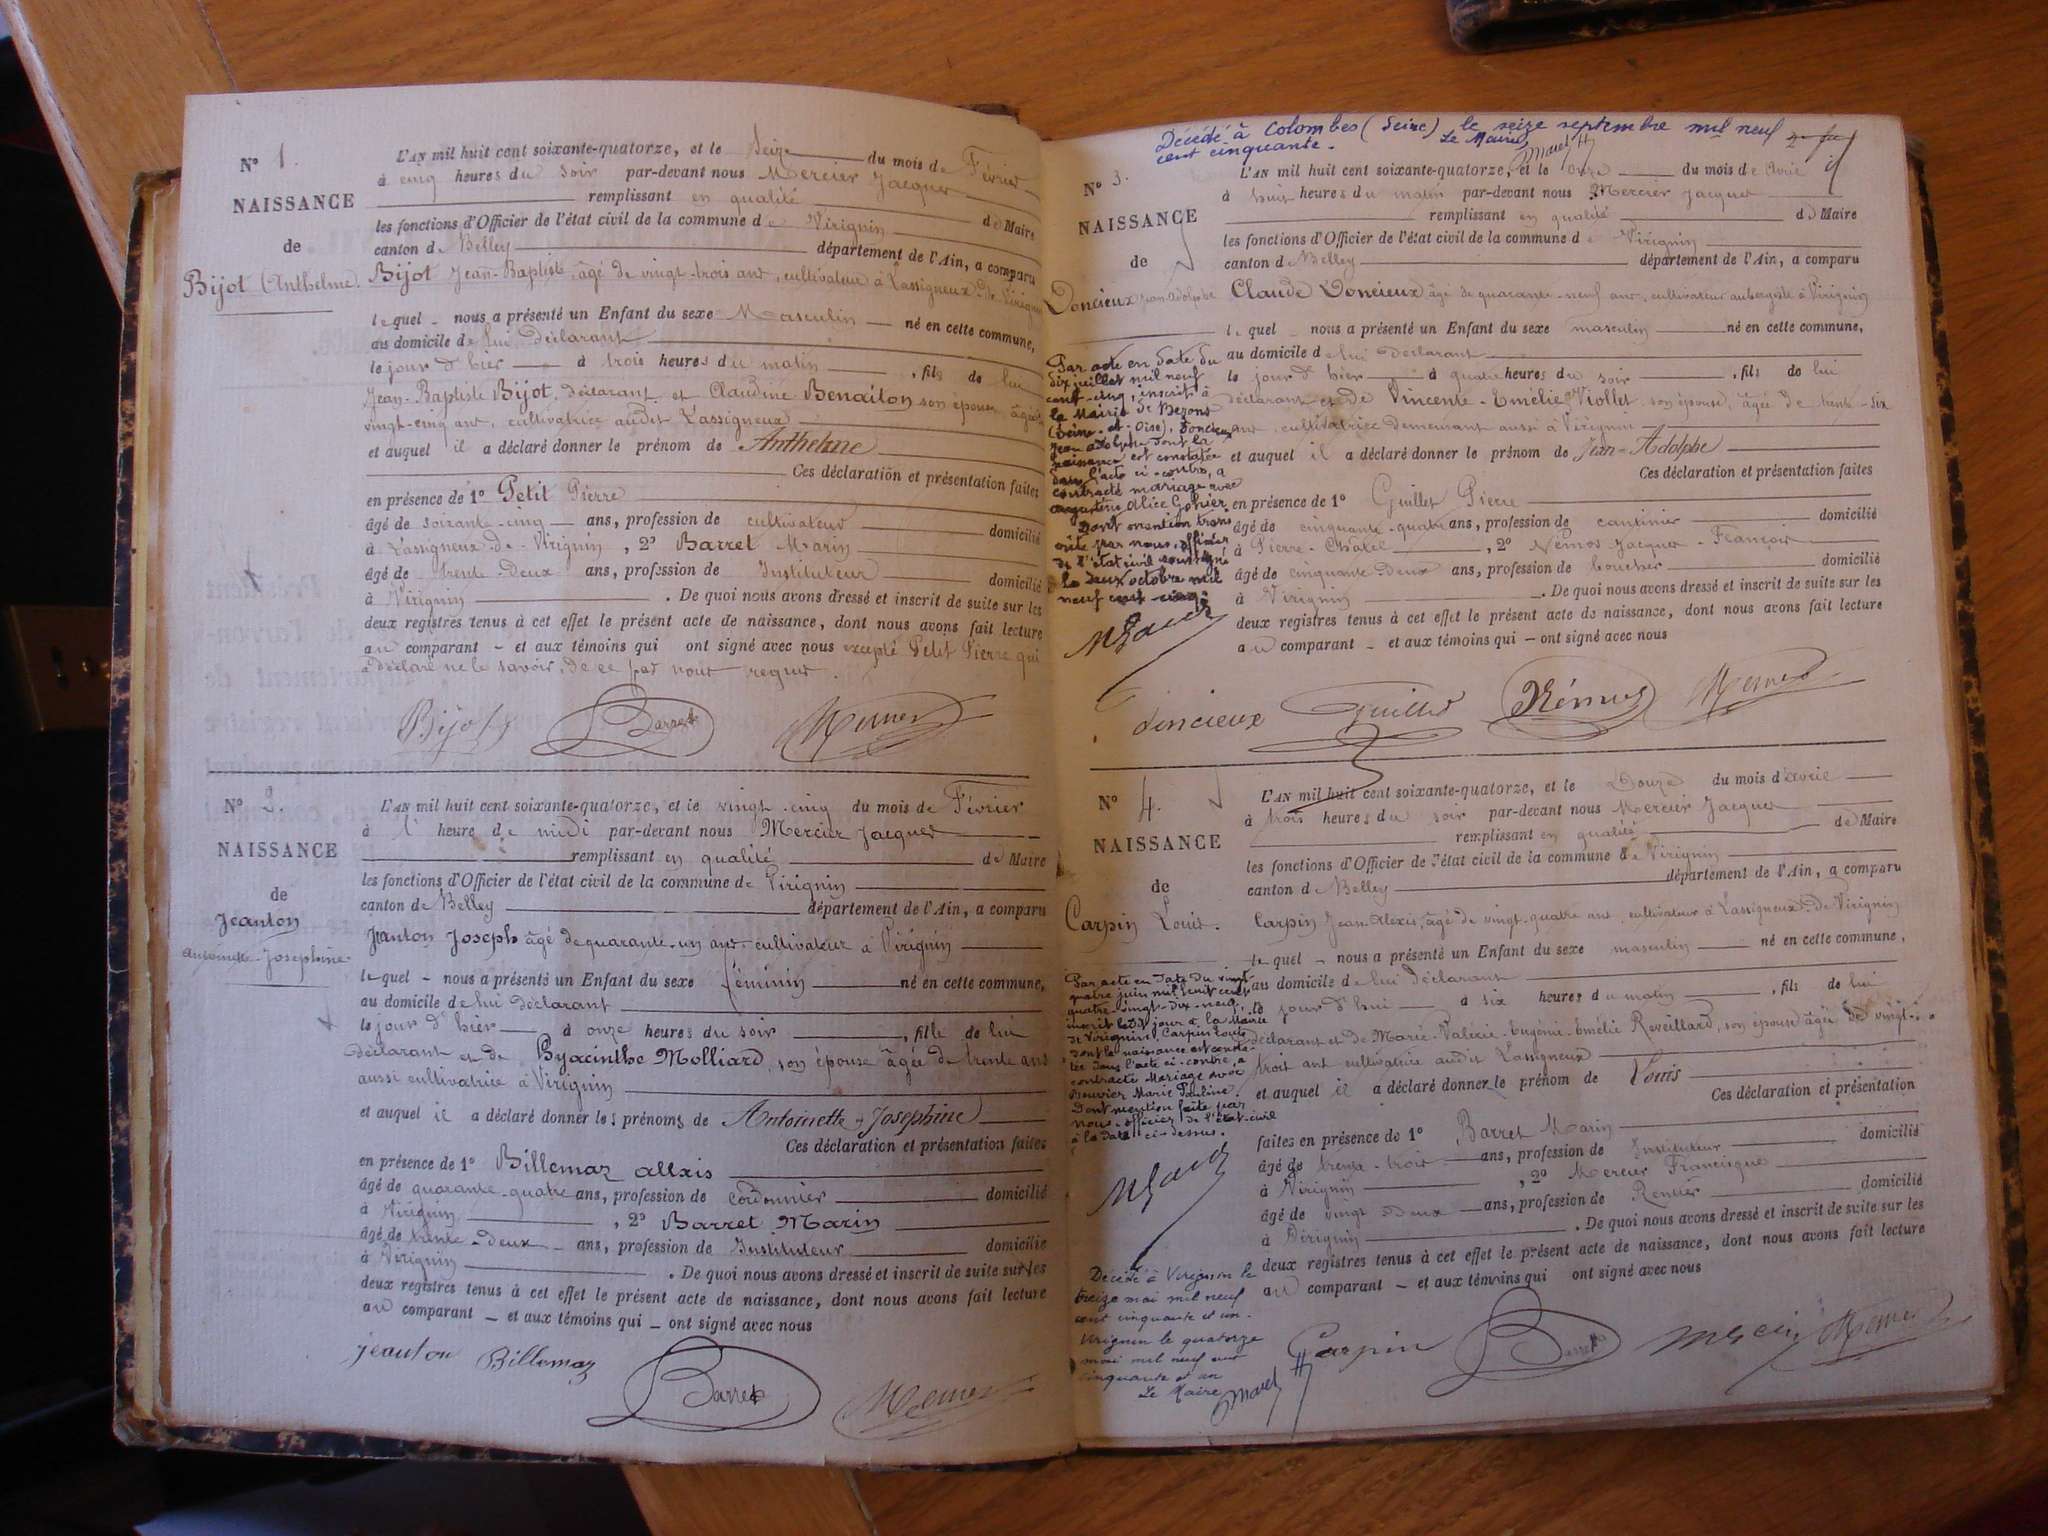 N° 1.
NAISSANCE
de
Bijot (Anthelme.
L'AN mil huit cent soixante-quatorze, et le Seize du mois de Février
à cinq heures du soir par-devant nous Mercier Jacques
remplissant en qualité de Maire
les fonctions d'Officier de l'état civil de la commune de Virignin
canton de Belley département de l'Ain, a comparu
Bijot Jean-Baptiste, âgé de vingt-trois ans, cultivateur à Lassigneux-de-Virignin
lequel - nous a présenté un Enfant du sexe Masculin né en cette commune,
au domicile de lui déclarant
le jour d'hier à trois heures du matin, fils de lui
Jean-Baptiste Bijot, déclarant et Claudine Benaiton son épouse âgée
vingt-cinq ans, cultivatrice audit Lassigneux
et auquel il a déclaré donner le prénom de Anthelme
Ces déclaration et présentation faites
en présence de 1° Petit Pierre
âgé de soixante-cinq ans, profession de cultivateur domicilié
à Lassigneux-de-Virignin, 2° Barret Marin
âgé de trente-deux ans, profession de Instituteur domicilié
à Virignin. De quoi nous avons dressé et inscrit de suite sur les
deux registres tenus à cet effet le présent acte de naissance, dont nous avons fait lecture
au comparant - et aux témoins qui ont signé avec nous excepté Petit Pierre qui
a déclaré ne le savoir, de ce par nous requis.
Bijot Barret Mercier
N° 2.
NAISSANCE
de
Jeanton
Antoinette-Josephine
L'AN mil huit cent soixante-quatorze, et le vingt-cinq du mois de Février
à l'heure de midi par-devant nous Mercier Jacques
remplissant en qualité de Maire
les fonctions d'Officier de l'état civil de la commune de Virignin
canton de Belley département de l'Ain, a comparu
Jeanton Joseph âgé de quarante-un ans cultivateur à Virignin
lequel - nous a présenté un Enfant du sexe féminin né en cette commune,
au domicile de lui déclarant
le jour d'hier à onze heures du soir, fille de lui
déclarant et de Hyacinthe Molliard, son épouse âgée de trente ans
aussi cultivatrice à Virignin
et auquel il a déclaré donner les prénoms de Antoinette-Josephine
Ces déclaration et présentation faites
en présence de 1° Billemaz allxis
âgé de quarante-quatre ans, profession de cordonnier domicilié
à Virignin, 2° Barret Marin
âgé de trente-deux ans, profession de Instituteur domicilié
à Virignin. De quoi nous avons dressé et inscrit de suite sur les
deux registres tenus à cet effet le présent acte de naissance, dont nous avons fait lecture
au comparant - et aux témoins qui - ont signé avec nous
jeanton Billemaz Barret Mercier
Décédé à Colombes (Seine) le seize septembre mil neuf
cent cinquante. Le Maire
N° 3.
NAISSANCE
de
Doncieux Jean-Adolphe
L'AN mil huit cent soixante-quatorze, et le onze du mois de Avril
à huit heures du matin par-devant nous Mercier Jacques
remplissant en qualité de Maire
les fonctions d'Officier de l'état civil de la commune de Virignin
canton de Belley département de l'Ain, a comparu
Claude Doncieux âgé de quarante-neuf ans, cultivateur aubergiste à Virignin
lequel - nous a présenté un Enfant du sexe masculin né en cette commune,
au domicile de lui déclarant
le jour d'hier à quatre heures du soir, fils de lui
déclarant et de Vincente-Emélie Viollet son épouse, âgée de trente-six
ans, cultivatrice demeurant aussi à Virignin
et auquel il a déclaré donner le prénom de Jean-Adolphe
Ces déclaration et présentation faites
en présence de 1° Guillet Pierre
âgé de cinquante-quatre ans, profession de cantinier domicilié
à Pierre-Châtel, 2° Némos Jacques-François
âgé de cinquante-deux ans, profession de boucher domicilié
à Virignin. De quoi nous avons dressé et inscrit de suite sur les
deux registres tenus à cet effet le présent acte de naissance, dont nous avons fait lecture
au comparant - et aux témoins qui - ont signé avec nous
Par acte en date du
dix juillet mil neuf
cent-cinq, inscrit à
la Mairie de Bezons
(Seine-et-Oise), Doncieux
Jean Adolphe dont la
naissance est constatée
dans l'acte ci-contre, a
contracté mariage avec
Augustine Alice Gohier
Dont mention trans
crite par nous, officier
de l'état civil soussigné
le deux octobre mil
neuf cent-cinq.
doncieux Guillet Némos Mercier
N° 4.
NAISSANCE
de
Carpin Louis.
L'AN mil huit cent soixante-quatorze, et le Douze du mois d'avril
à trois heures du soir par-devant nous Mercier Jacques
remplissant en qualité de Maire
les fonctions d'Officier de l'état civil de la commune de Virignin
canton de Belley département de l'Ain, a comparu
Carpin Jean-Alexis, âgé de vingt-quatre ans, cultivateur à Lassigneux-de-Virignin
lequel - nous a présenté un Enfant du sexe masculin né en cette commune,
au domicile de lui déclarant
le jour d'hui à six heures du matin, fils de lui
déclarant et de Marie-Valérie-Eugénie-Emélie Reveillard, son épouse âgée de vingt-
trois ans cultivatrice audit Lassigneux
et auquel il a déclaré donner le prénom de Louis
Ces déclaration et présentation
faites en présence de 1° Barret Marin
âgé de trente-trois ans, profession de Instituteur domicilié
à Virignin, 2° Mercier Francisque
âgé de vingt deux ans, profession de Rentier domicilié
à Virignin. De quoi nous avons dressé et inscrit de suite sur les
deux registres tenus à cet effet le présent acte de naissance, dont nous avons fait lecture
au comparant - et aux témoins qui ont signé avec nous
Par acte en date du vingt-
quatre juin mil huit cent
quatre-vingt-dix-neuf,
inscrit ledit jour à la Mairie
de Virignin, Carpin Louis
dont la naissance est consta-
tée dans l'acte ci-contre, a
contracté Mariage avec
Bouvier Marie Pauline.
Dont mention faite par
nous, officier de l'état-civil
à la date ci-dessus.
Décédé à Virignin le
treize mai mil neuf
cent cinquante et un.
Virignin le quatorze
mai mil neuf cent
cinquante et un
Le Maire
Carpin Barret Mercier